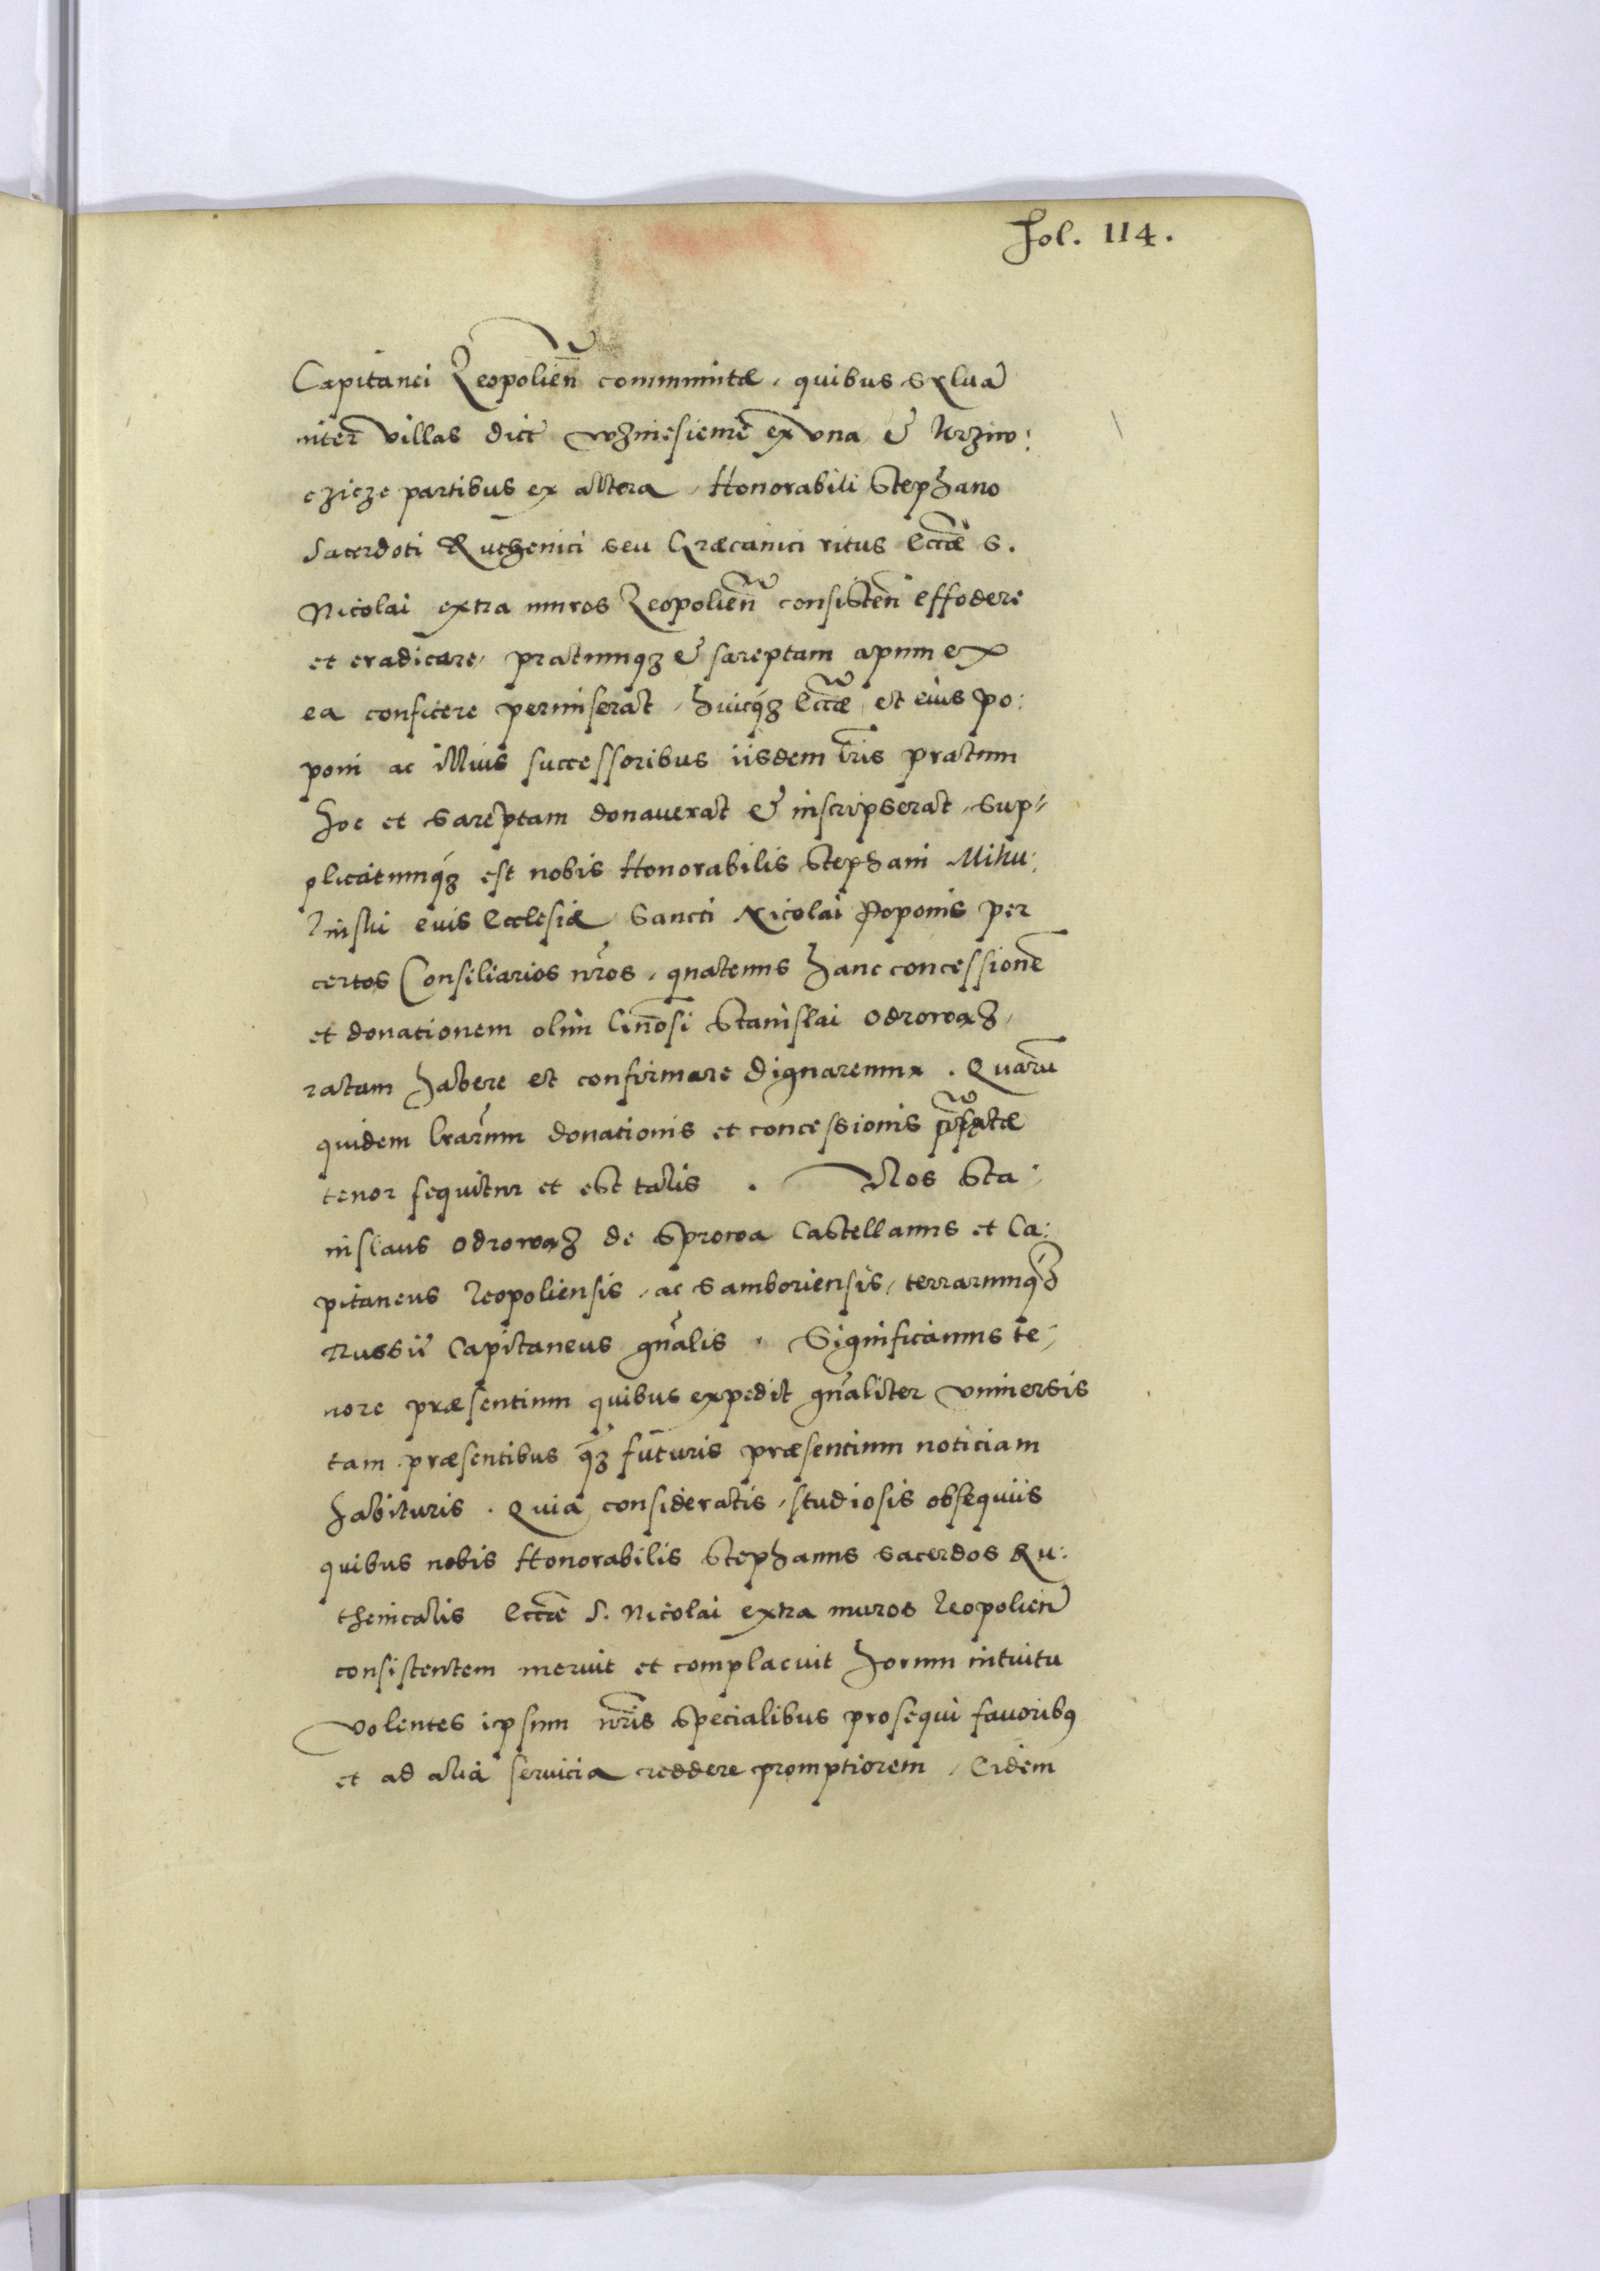 Fol. 114.
Capitanei Leopolieñ communitæ, quibus sylvã
inter villas dict wzniesienie ex una et Krziw:
czieze partibus ex altera, Honorabili Stephano
Sacerdoti Ruthenici seu Græcanici ritus Eccłæ S.
Nicolai extra muros Leopolieñ consisteñ effodere
et eradicare, pratumqȝ et sareptam apum ex
ea conficere permiserat, huicqȝ Eccłæ et eius po:
poni ac illius successoribus iisdem łris pratum
hoc et sareptam donaverat et inscripserat, sup=
plicatumqȝ est nobis Honorabilis Stephani Mihu:
linski eius Ecclesiæ Sancti Nicolai Poponis per
certos Consiliarios nr̃os, quatenus hanc concessionẽ
et donationem olim Gnosi Stanislai Odrowąż,
ratam habere et confirmare dignaremur. Quarũ
quidem lrarum donationis et concessionis præfatæ
tenor sequitur et est talis. Nos Sta:
nislaus Odrowąż de Sprowa Castellanus et Ca:
pitaneus Leopoliensis, ac Samboriensis, terrarumqȝ
Russiĩ Capitaneus gñalis. Significamus te:
nore præsentium quibus expedit gñaliter universis
tam præsentibus qȝ futuris præsentium noticiam
habituris. Quia consideratis, studiosis obsequiis
quibus nobis Honorabilis Stephanus sacerdos Ru:
thenicalis Eccłæ S. Nicolai extra muros Leopolieñ
consistentem meruit et complacuit horum intuitu
volentes ipsum nr̃is specialibus prosequi favoribȝ
et ad alia servicia reddere promptiorem, Eidem